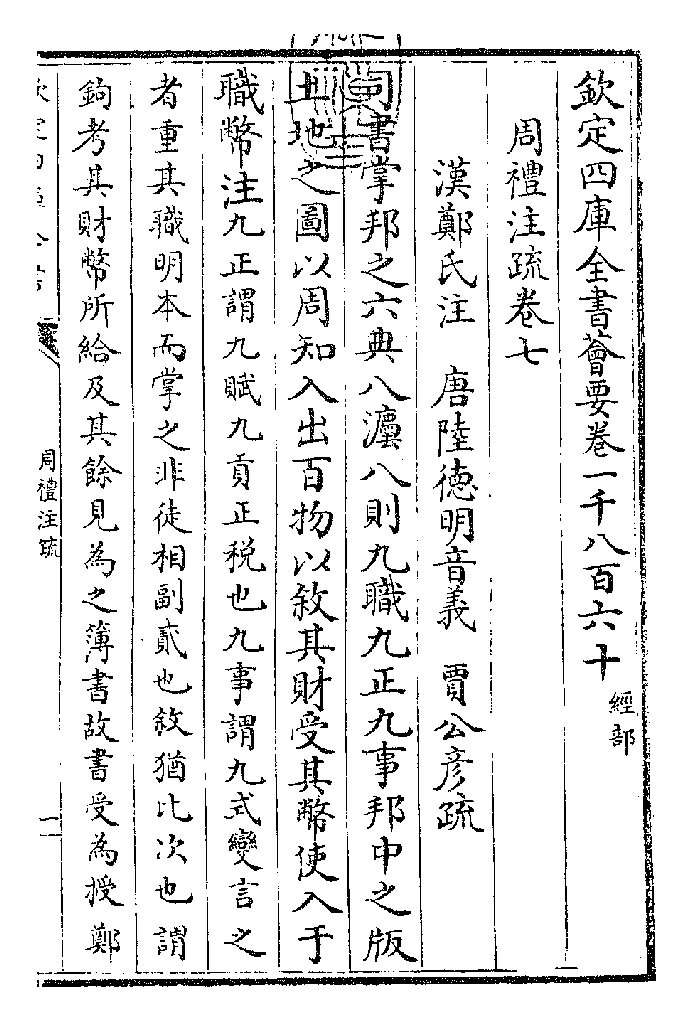 欽定四庫全書薈要卷一千八百六十 經部
周禮注疏卷七
漢鄭氏注 唐陸德明音義 賈公彦疏
司書掌邦之六典八灋八則九職九正九事邦中之版
土地之圖以周知入出百物以敘其財受其幣使入于
職幣注九正謂九賦九貢正税也九事謂九式變言之
者重其職明本而掌之非徒相副貳也敘猶比次也謂
鉤考其財幣所給及其餘見為之簿書故書受為授鄭
周禮注疏
一